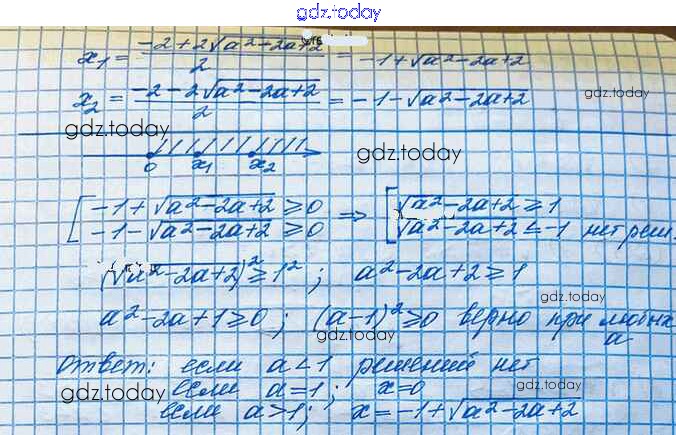 gdz.today
x₁ = (-2+2√(a²-2a+2))/2 = -1+√(a²-2a+2)
x₂ = (-2-2√(a²-2a+2))/2 = -1-√(a²-2a+2)
gdz.today
gdz.today
0 x₁ x₂
gdz.today
[ -1+√(a²-2a+2) ≥ 0 ⇒ [ √(a²-2a+2) ≥ 1
-1-√(a²-2a+2) ≥ 0 √(a²-2a+2) ≤ -1 нет реш.
(√(a²-2a+2))² ≥ 1²; a²-2a+2 ≥ 1
gdz.today
a²-2a+1 ≥ 0; (a-1)² ≥ 0 верно при любых a
gdz.today
Ответ: если a<1 решений нет
если a=1; x=0
gdz.today
gdz.today
если a>1; x=-1+√(a²-2a+2)